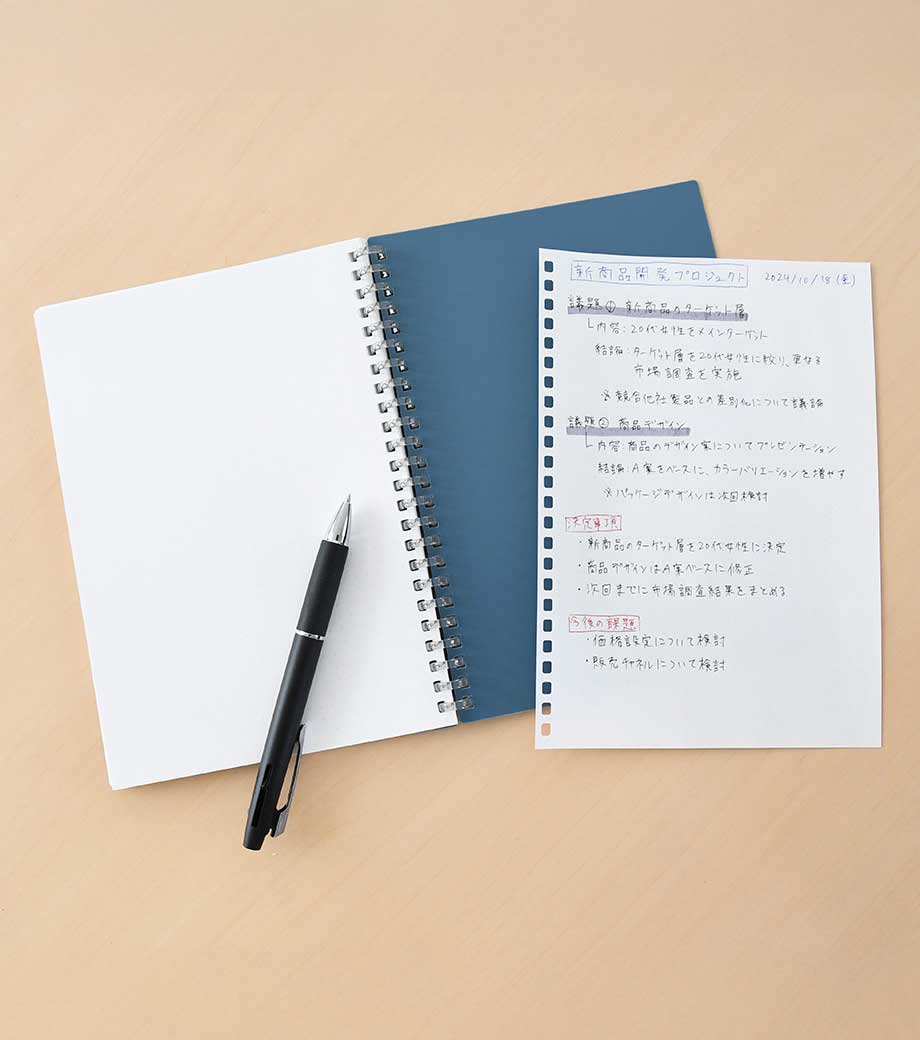 新商品開発プロジェクト 2024/10/18(金)
議題① 新商品のターゲット層
└内容:20代女性をメインターゲット
結論:ターゲット層を20代女性に絞り、更なる
市場調査を実施
※競合他社製品との差別化について議論
議題② 商品デザイン
└内容:商品のデザイン案についてプレゼンテーション
結論:A案をベースに、カラーバリエーションを増やす
※パッケージデザインは次回検討
決定事項
・新商品のターゲット層を20代女性に決定
・商品デザインはA案ベースに修正
・次回までに市場調査結果をまとめる
今後の課題
・価格設定について検討
・販売チャネルについて検討